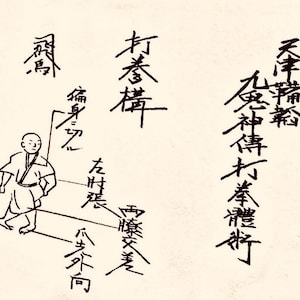 天津鞴韜
九鬼神傳打拳體術
打拳構
飛鳥
偏身ニ切ル
左肘張
両膝交差
爪先外向